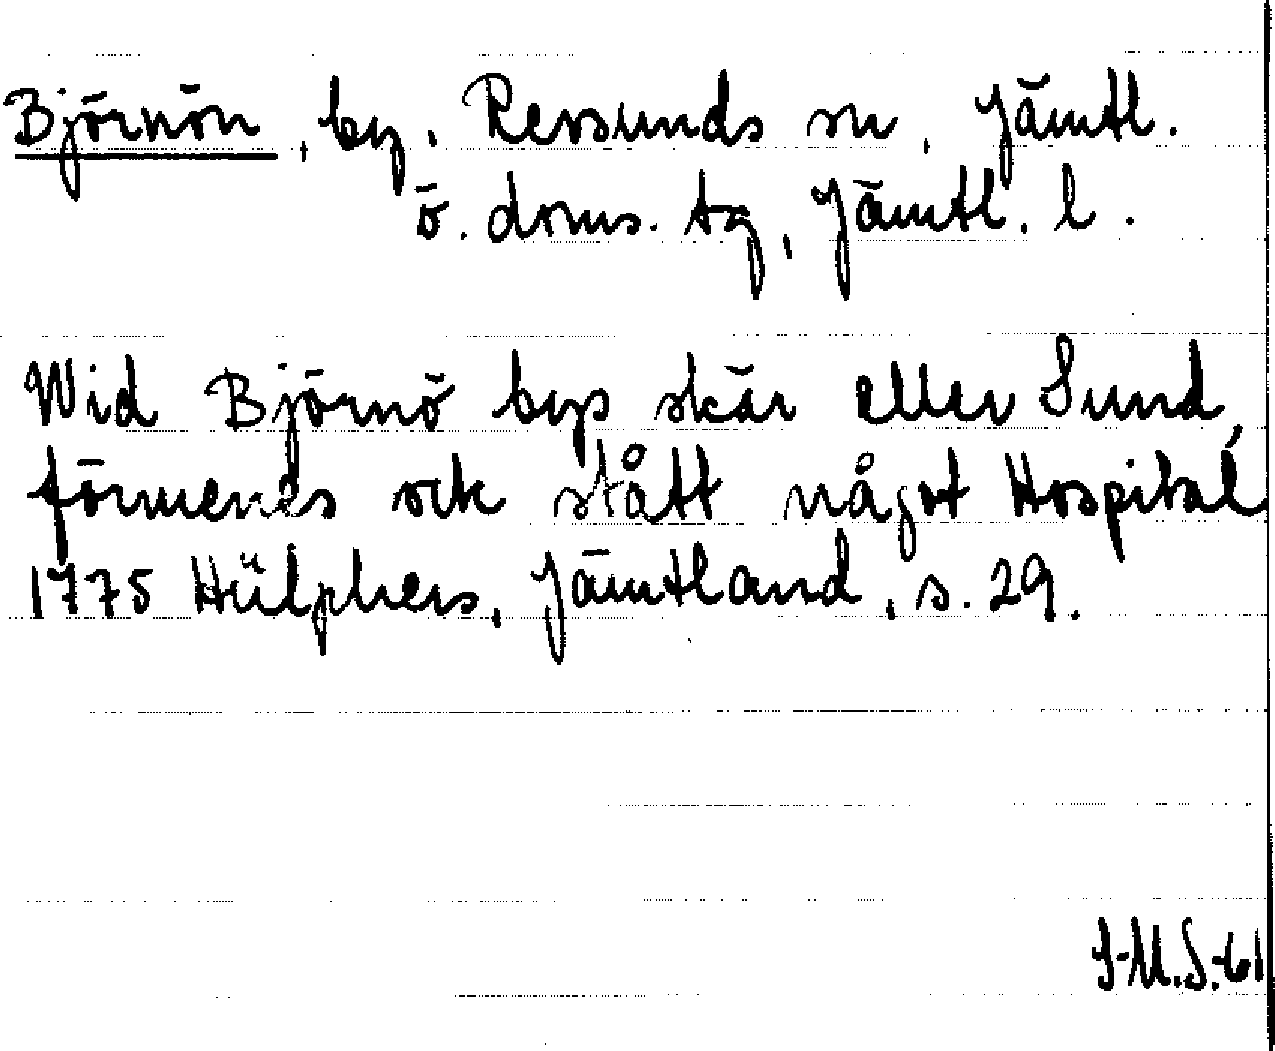 Björnön, by, Revsunds sn, Jämtl.
ö. doms. tg, Jämtl. l.
Wid Björnö bys skär eller Sund,
förmenes ock stått något Hospital
1775 Hülphers, Jämtland, s. 29.
I-M.S.-61